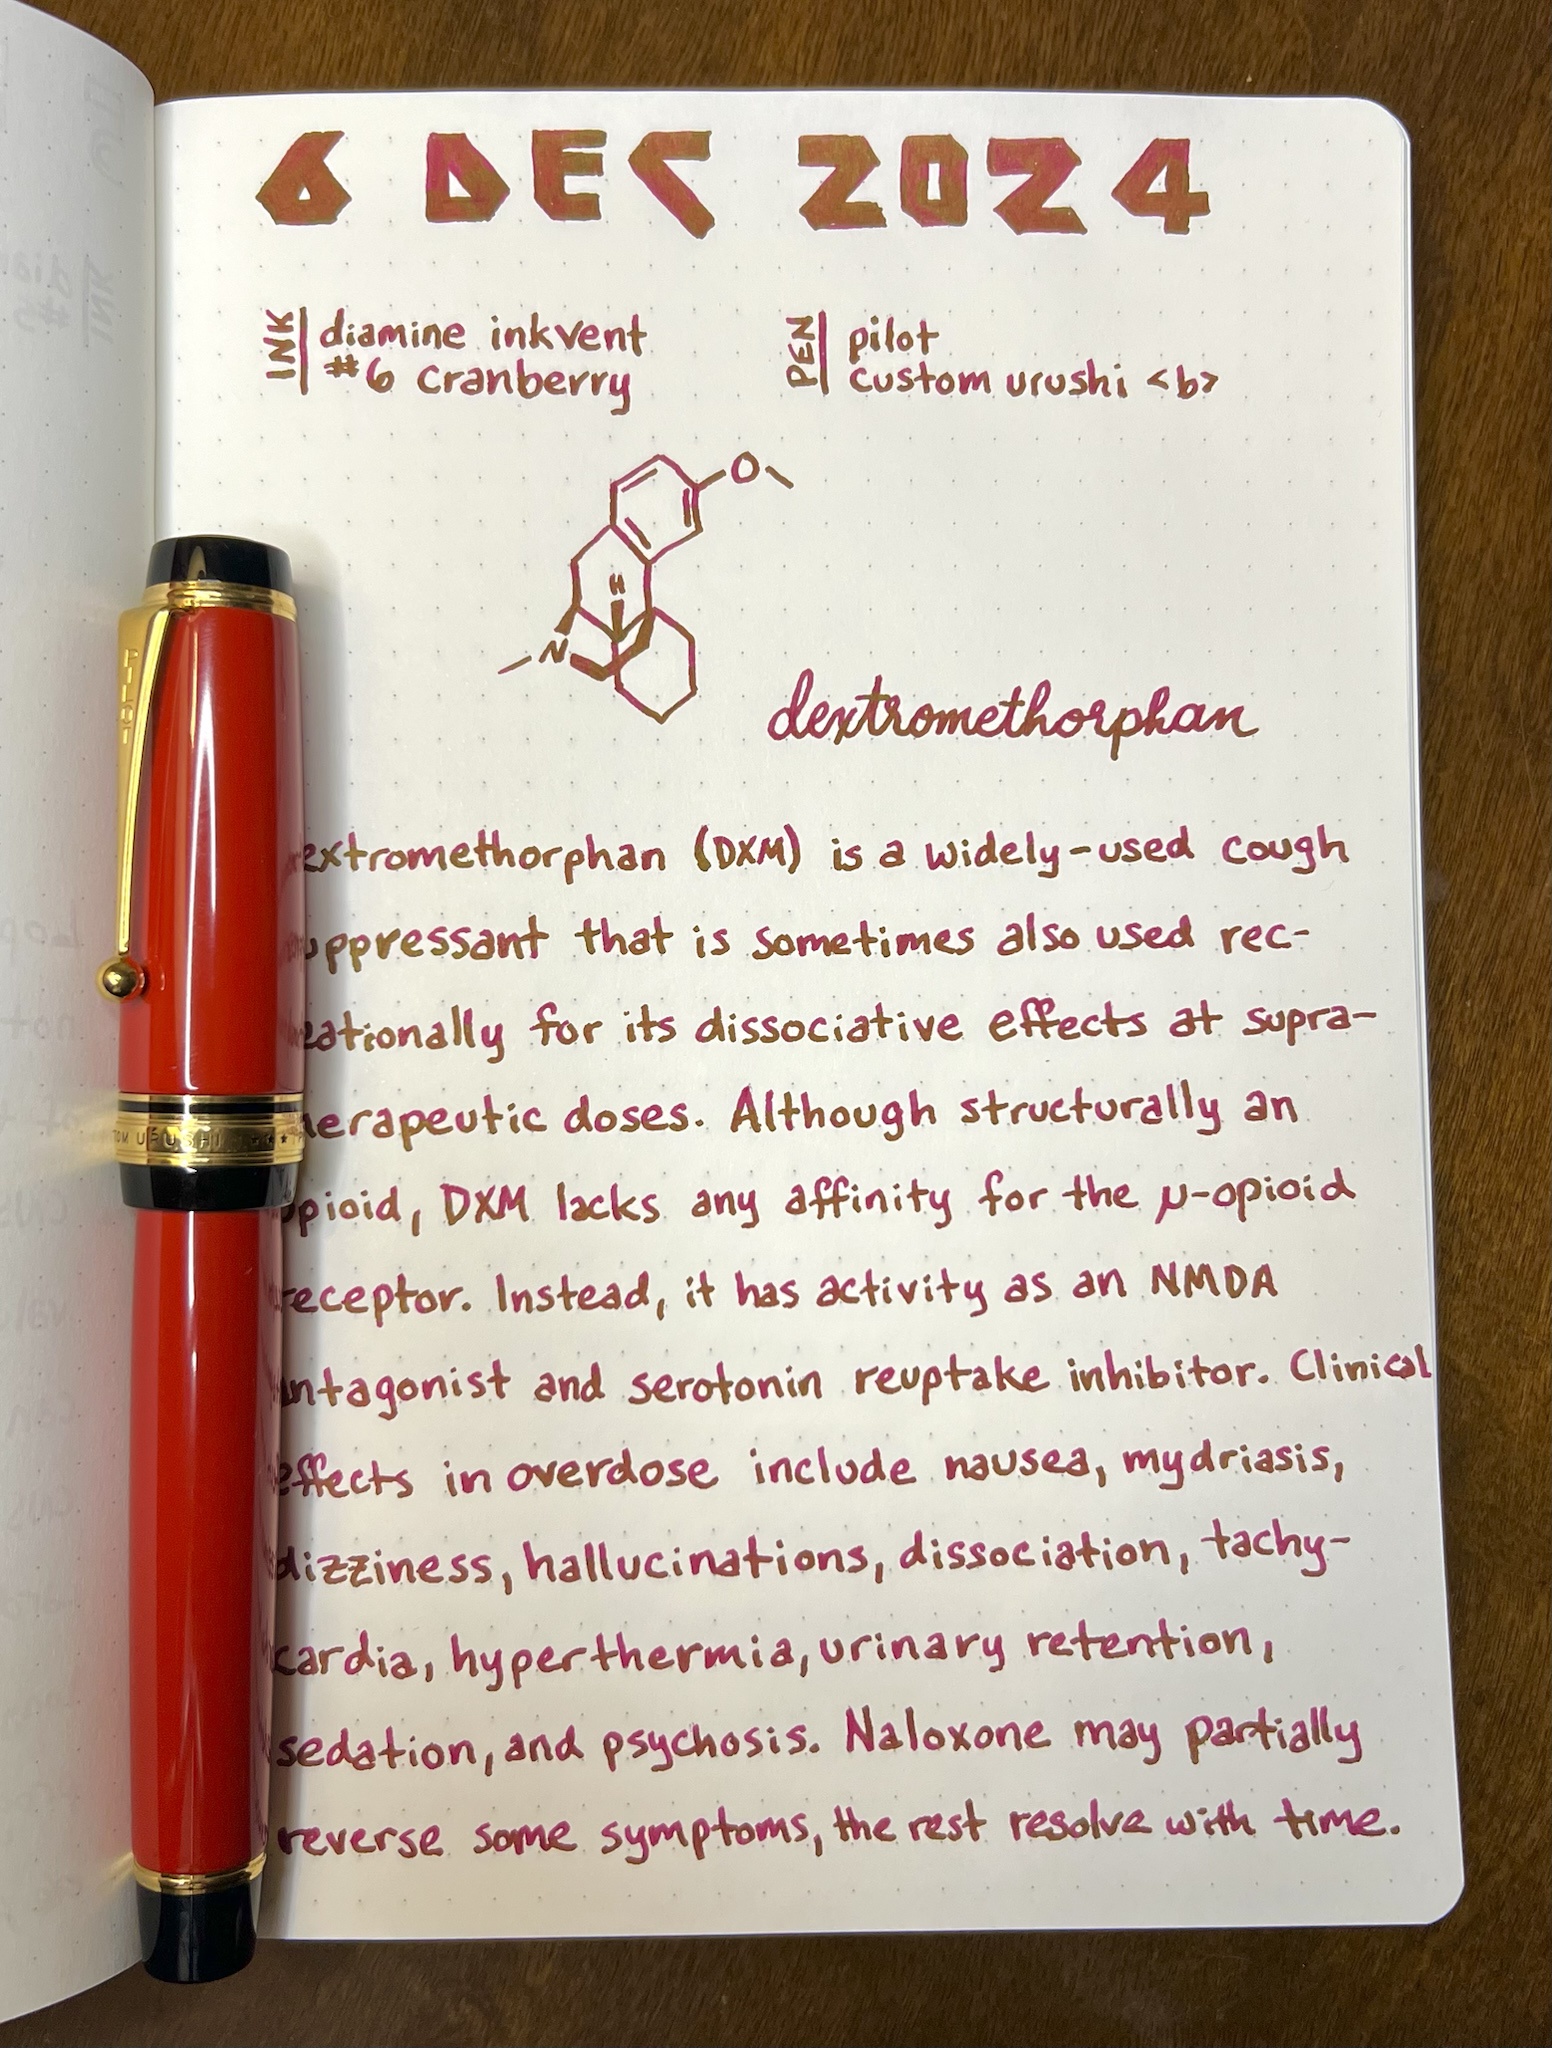 6 DEC 2024
INK
diamine inkvent
#6 cranberry
PEN
pilot
custom urushi <b>
O
H
N
dextromethorphan
extromethorphan (DXM) is a widely-used cough
uppressant that is sometimes also used rec-
eationally for its dissociative effects at supra-
herapeutic doses. Although structurally an
opioid, DXM lacks any affinity for the μ-opioid
receptor. Instead, it has activity as an NMDA
antagonist and serotonin reuptake inhibitor. Clinical
effects in overdose include nausea, mydriasis,
dizziness, hallucinations, dissociation, tachy-
cardia, hyperthermia, urinary retention,
sedation, and psychosis. Naloxone may partially
reverse some symptoms, the rest resolve with time.
PILOT
TOM URUSHI ★★★